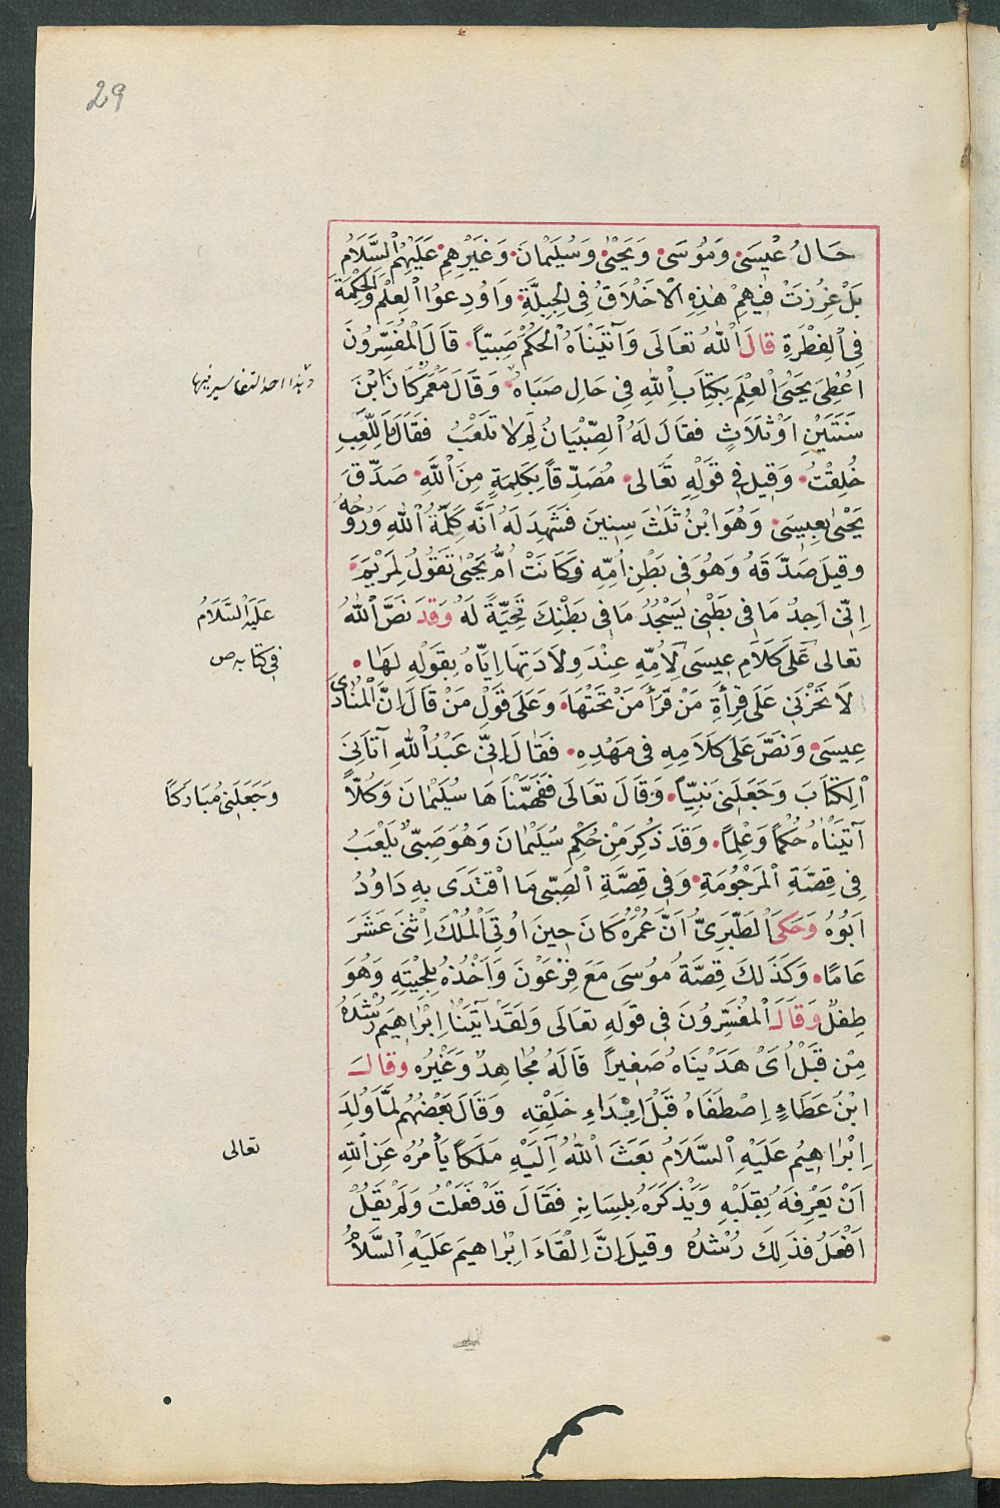 29
حَالُ عِيسَى وَمُوسَى وَيَحْيَى وَسُلَيْمَانَ وَغَيْرِهِمْ عَلَيْهِمُ السَّلَامُ
بَلْ غُرِزَتْ فِيهِمْ هٰذِهِ الْاَخْلَاقُ فِي الْجِبِلَّةِ وَاُودِعُوا الْعِلْمَ وَالْحِكْمَةَ
فِي الْفِطْرَةِ قَالَ اللّٰهُ تَعَالَى وَآتَيْنَاهُ الْحُكْمَ صَبِيّاً قَالَ الْمُفَسِّرُونَ
اُعْطِيَ يَحْيَى الْعِلْمَ بِكِتَابِ اللّٰهِ فِي حَالِ صَبَاهُ وَقَالَ مَعْمَرٌ كَانَ ابْنَ
سَنَتَيْنِ اَوْ ثَلَاثٍ فَقَالَ لَهُ الصِّبْيَانُ لِمَ لَا تَلْعَبُ فَقَالَ اَلِلَّعِبِ
خُلِقْتُ وَقِيلَ فِي قَوْلِهِ تَعَالَى مُصَدِّقاً بِكَلِمَةٍ مِنَ اللّٰهِ صَدَّقَ
يَحْيَى بِعِيسَى وَهُوَ ابْنُ ثَلٰثِ سِنِينَ فَشَهِدَ لَهُ اَنَّهُ كَلِمَةُ اللّٰهِ وَرُوحُهُ
وقيلَ صَدَّقَهُ وَهُوَ فِي بَطْنِ اُمِّهِ فَكَانَتْ اُمُّ يَحْيَى تَقُولُ لِمَرْيَمَ
اِنّي اَجِدُ مَا فِي بَطْنِي يَسْجُدُ مَا فِي بَطْنِكَ تَحِيَّةً لَهُ وَقَدْ نَصَّ اللّٰهُ
تعالى عَلَى كَلَامِ عِيسَى لِاُمِّهِ عِنْدَ وِلَادَتِهَا اِيَّاهُ بِقَوْلِهِ لَهَا
لَا تَحْزَنِي عَلَى قِرَأَةِ مَنْ قَرَأَ مَنْ تَحْتَهَا وَعَلَى قَوْلِ مَنْ قَالَ اِنَّ الْمُنَادَى
عِيسَى وَنَصَّ عَلَى كَلَامِهِ فِي مَهْدِهِ فَقَالَ اِنِّي عَبْدُ اللّٰهِ آتَانِيَ
الْكِتَابَ وَجَعَلَنِي نَبِيّاً وَقَالَ تَعَالَى فَفَهَّمْنَاهَا سُلَيْمَانَ وَكُلّاً
آتَيْنَاهُ حُكْماً وَعِلْماً وَقَدْ ذُكِرَ مِنْ حُكْمِ سُلَيْمَانَ وَهُوَ صَبِيٌّ يَلْعَبُ
فِي قِصَّةِ الْمَرْجُومَةِ وَفِي قِصَّةِ الصَّبِيِّ مَا اقْتَدَى بِهِ دَاوُدُ
اَبُوهُ وَحَكَى الطَّبَرِيُّ اَنَّ عُمْرَهُ كَانَ حِينَ اُوتِيَ الْمُلْكَ اِثْنَى عَشَرَ
عَامًا وَكَذَلِكَ قِصَّةُ مُوسَى مَعَ فِرْعَوْنَ وَاَخْذُهُ بِلِحْيَتِهِ وَهُوَ
طِفْلٌ وَقَالَ الْمُفَسِّرُونَ فِي قَوْلِهِ تَعَالَى وَلَقَدْ آتَيْنَا اِبْرَاهِيمَ رُشْدَهُ
مِنْ قَبْلُ اَيْ هَدَيْنَاهُ صَغِيراً قَالَهُ مُجَاهِدٌ وَغَيْرُهُ وقال
ابْنُ عَطَاءٍ اِصْطَفَاهُ قَبْلَ اِبْدَاءِ خَلْقِهِ وَقَالَ بَعْضُهُمْ لَمَّا وُلِدَ
اِبْرَاهِيمُ عَلَيْهِ السَّلَامُ بَعَثَ اللّٰهُ اِلَيْهِ مَلَكاً يَأْمُرُهُ عَنِ اللّٰهِ
اَنْ يَعْرِفَهُ بِقَلْبِهِ وَيَذْكُرَهُ بِلِسَانِهِ فَقَالَ قَدْ فَعَلْتُ وَلَمْ يَقُلْ
اَفْعَلُ فَذَلِكَ رُشْدُهُ وقيلَ اِنَّ اِلْقَاءَ اِبْرَاهيمَ عَلَيْهِ السَّلَامُ
وهذا احد التفاسير فيها
عَلَيْهِ السَّلَامُ
فِي كتابه ص
وَجَعَلَنِي مُبَارَكًا
تعالى